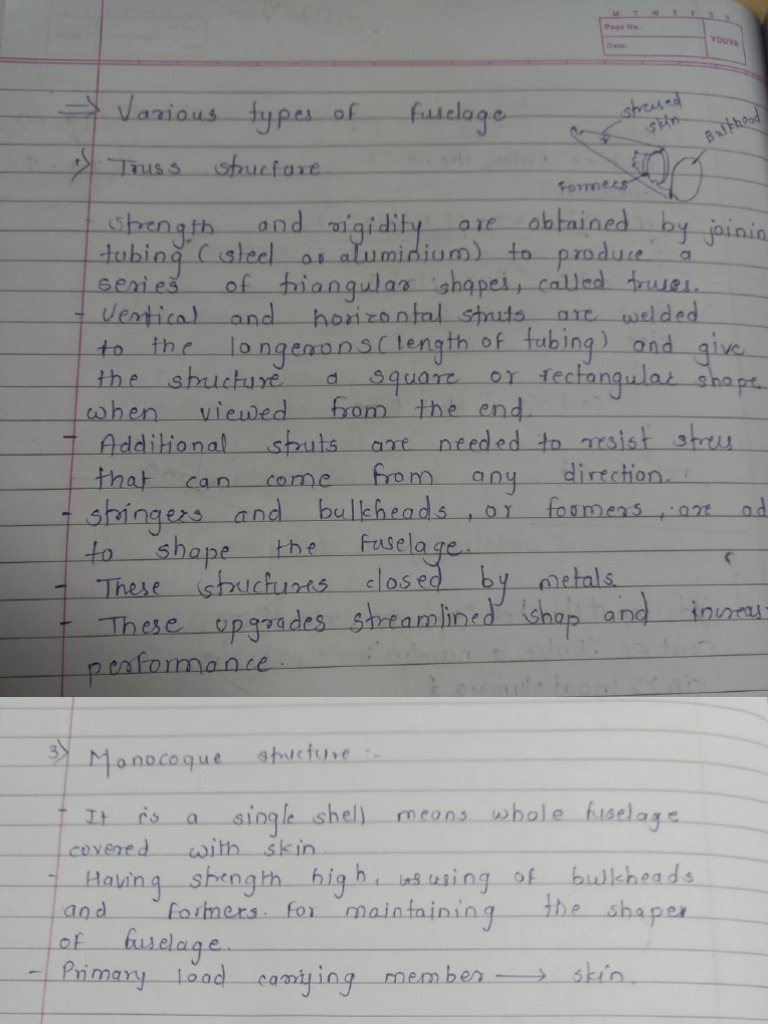 M T W T F S S
Page No.:
Date:
YOUVA
⇒ Various types of fuselage
stressed skin
Bulkhead
Formers
1) Truss structure
- strength and rigidity are obtained by joinin
tubing (steel or alumidium) to produce a
series of triangular shapes, called truses.
- Vertical and horizontal struts are welded
to the longerons (length of tubing) and give
the structure a square or rectangular shape
when viewed from the end.
- Additional struts are needed to resist stress
that can come from any direction.
- stringers and bulkheads, or foomers, are ad
to shape the fuselage.
- These structures closed by metals.
- These upgrades streamlined shap and increas
performance.
3) Monocoque structure :-
- It is a single shell means whole fuselage
covered with skin
- Having strength high, using of bulkheads
and formers. for maintaining the shape
of fuselage.
- Primary load carrying member → skin.